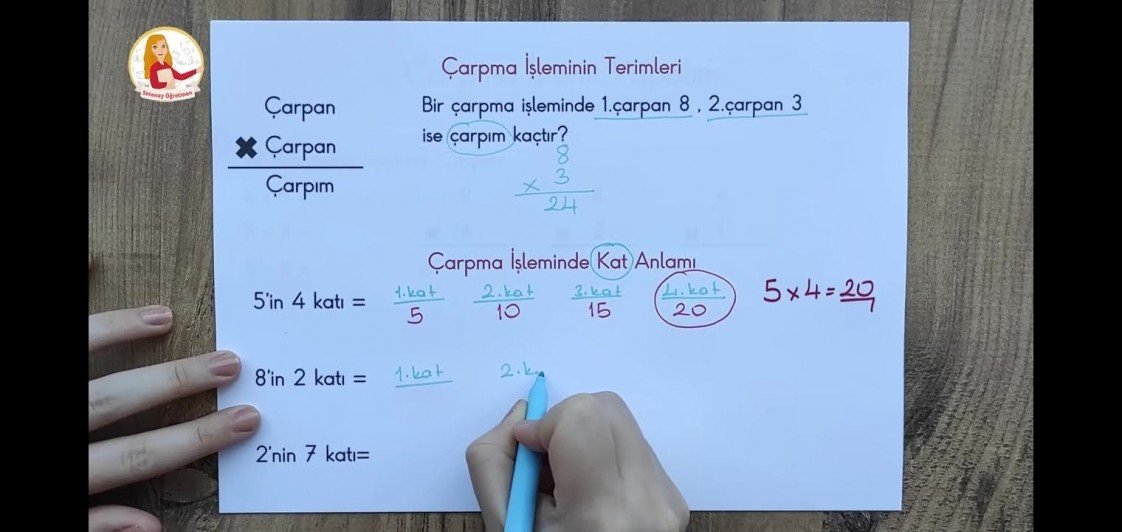 Seteney Öğretmen
Çarpma İşleminin Terimleri
Çarpan
✖ Çarpan
Çarpım
Bir çarpma işleminde 1.çarpan 8 , 2.çarpan 3
ise çarpım kaçtır?
8
x 3
24
Çarpma İşleminde Kat Anlamı
5'in 4 katı = 1.kat 2.kat 3.kat 4.kat
5 10 15 20
5 x 4 = 20
8'in 2 katı = 1.kat 2.k
2'nin 7 katı=